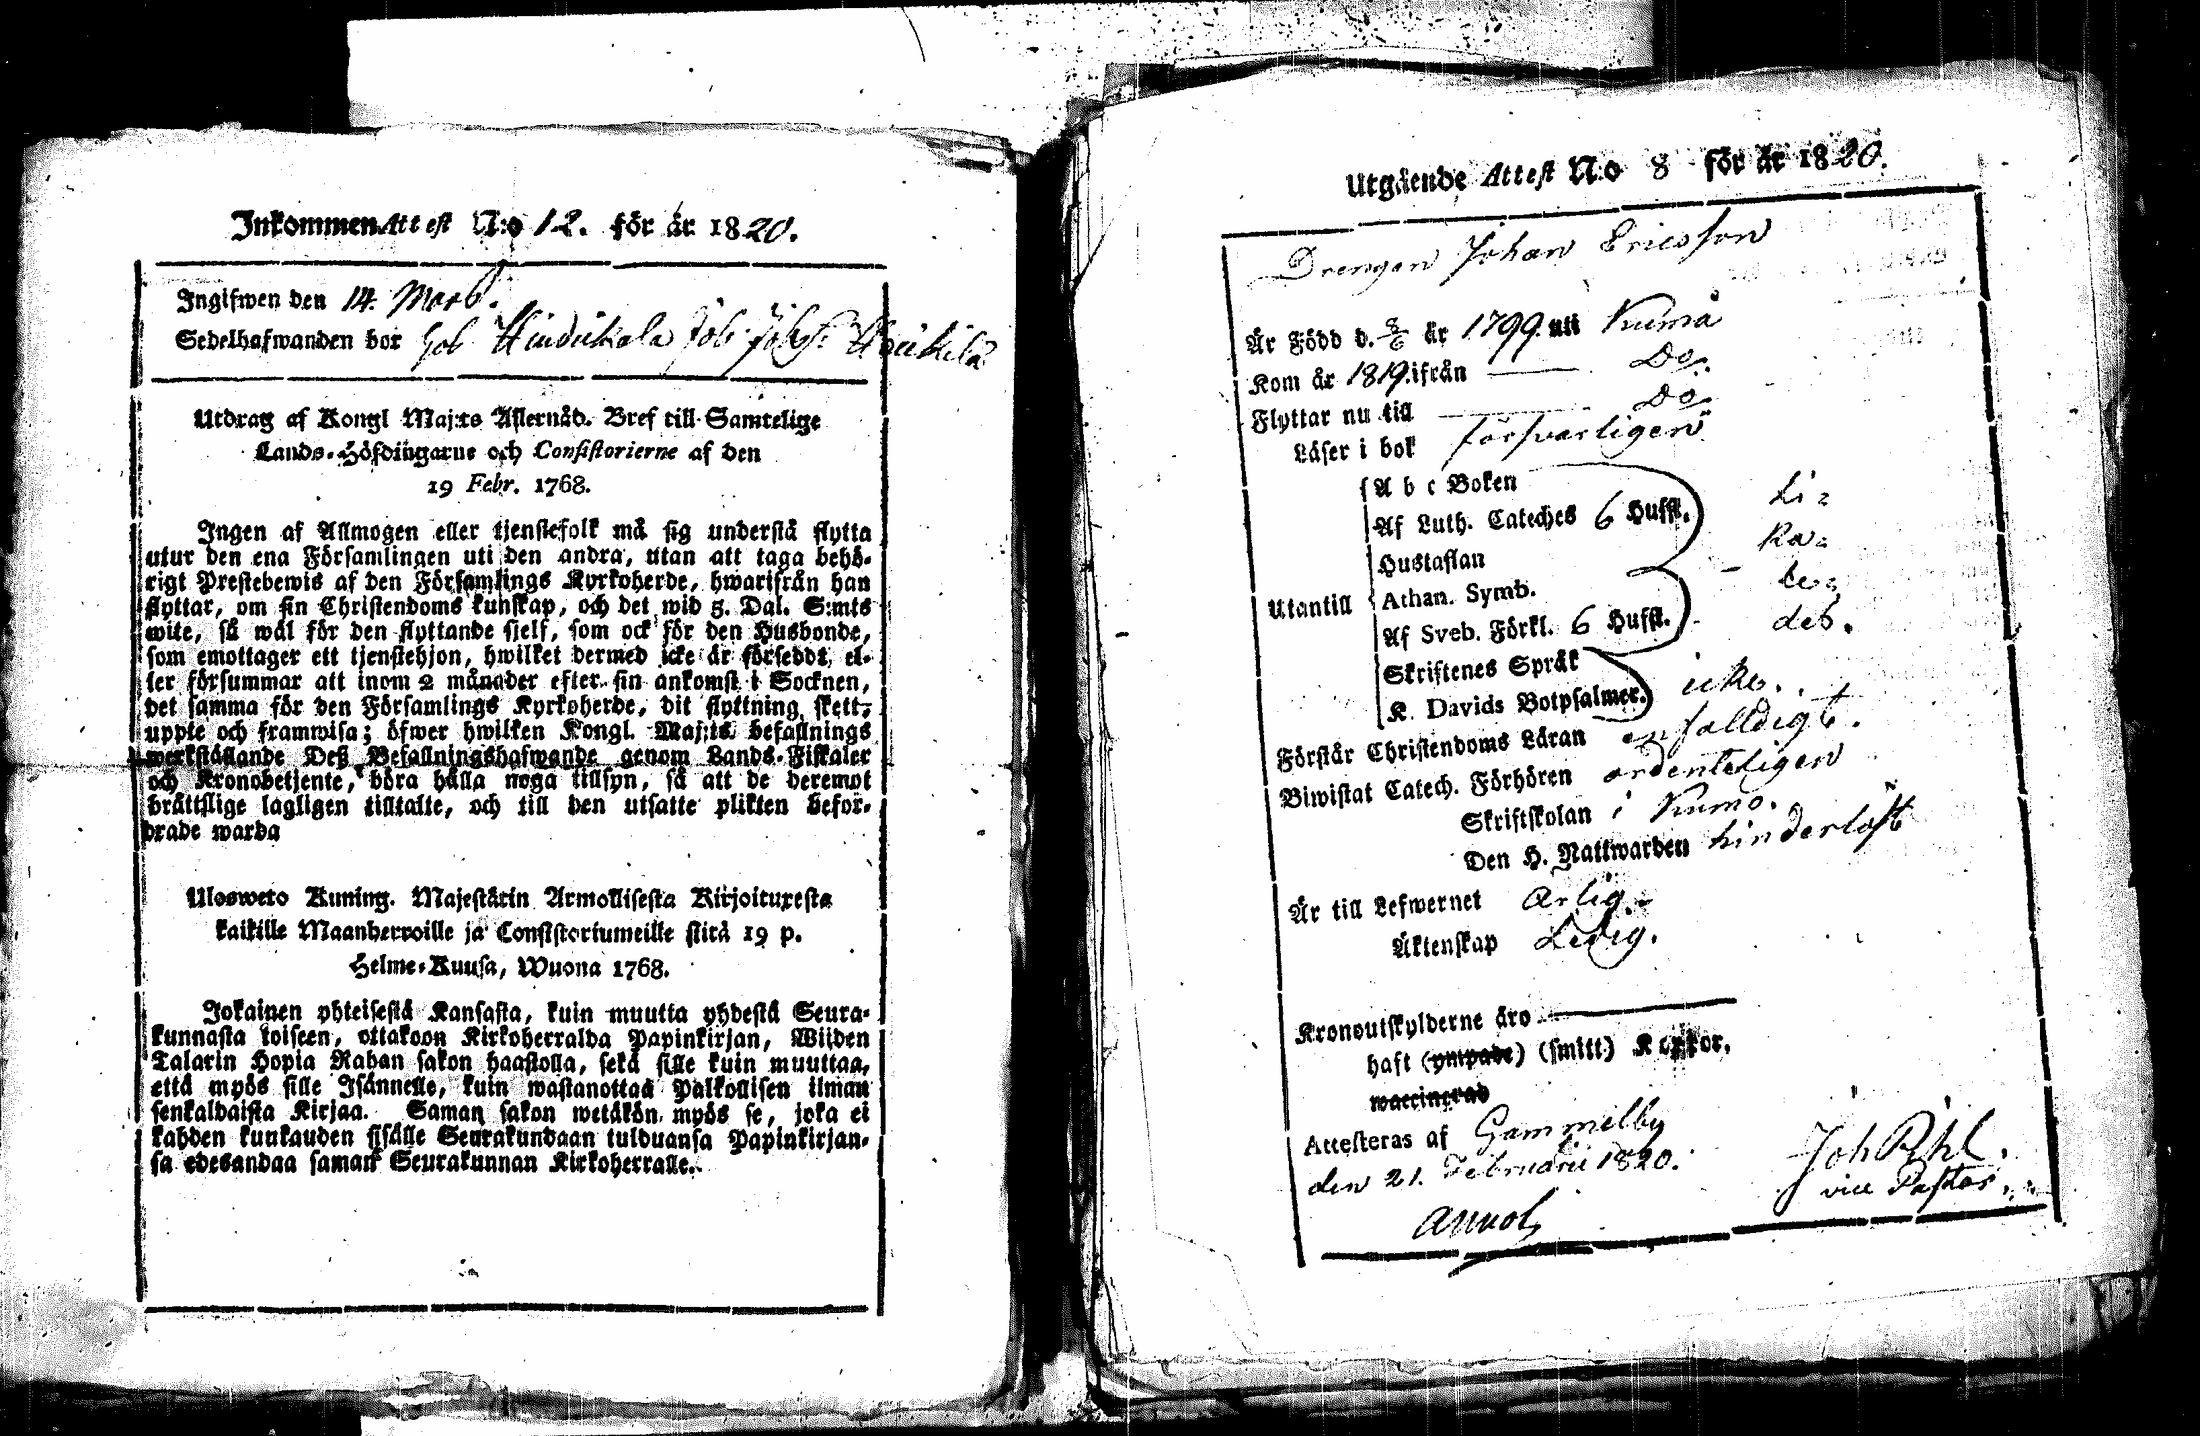 Inkommen Attest N:o 12. för år 1820.
Ingifwen den 14. Mart.
Sedelhafwanden bor hos
Utdrag af Kongl Maj:ts Allernåd. Bref till Samtelige
Lands-Höfdingarne och Consistorierne af den
19 Febr. 1768.
Ingen af Allmogen eller tjenstefolk må sig understå flytta
utur den ena Församlingen uti den andra, utan att taga behö-
rigt Prestebewis af den Församlings Kyrkoherde, hwarifrån han
flyttar, om sin Christendoms kunskap, och det wid 5. Dal. S:mts
wite, så wäl för den flyttande sjelf, som ock för den Husbonde,
som emottager ett tjenstehjon, hwilket dermed icke är försedt, el-
ler försummar att inom 2 månader efter sin ankomst i Socknen,
det samma för den Församlings Kyrkoherde, dit flyttning skett,
uppte och framwisa; öfwer hwilken Kongl. Maj:ts befallnings
werkställande Deß Befallningshafwande genom Lands-Fiskaler
och Kronobetjente, böra hålla noga tillsyn, så att de deremot
bråttslige lagligen tilltalte, och till den utsatte plikten beför-
drade warda
Ulosweto Kuning. Majestätin Armollisesta Kirjoituxesta
kaikille Maanherroille ja Consistoriumeille siitä 19 p.
Helme-Kuusa, Wuona 1768.
Jokainen yhteisestä Kansasta, kuin muutta yhdestä Seura-
kunnasta toiseen, ottakoon Kirkoherralda Papinkirjan, Wiiden
Talarin Hopia Rahan sakon haastolla, sekä sille kuin muuttaa,
että myös sille Isännelle, kuin wastanottaa Palkollisen ilman
senkaldaista Kirjaa. Saman sakon wetäkön myös se, joka ei
kahden kuukauden sisälle Seurakundaan tulduansa Papinkirjan-
sa edesandaa saman Seurakunnan Kirkoherralle.
Utgående Attest N:o 8 för år 1820.
Drengen Johan Ericsson
Är Född d. 2/6 år 1799. uti Kumå
Kom år 1819. ifrån Do.
Flyttar nu till Do.
Läser i bok försvarligen
A b c Boken
Af Luth. Cateches 6 Hufst. Li=
Hustaflan ka=
Utantill Athan. Symb. le=
Af Sveb. Förkl. 6 Hufst. des.
Skriftenes Språk
K. Davids Botpsalmer. icke.
Förstår Christendoms Läran enfalldigt.
Biwistat Catech. Förhören ordenteligen
Skriftskolan i Kumo.
Den H. Nattwarden hinderlöst
Är till Lefwernet Ärlig.
Äktenskap Ledig.
Kronoutskylderne äro
haft (ympade) (smitt) Koppor,
waccinerad
Attesteras af Gammelby
den 21. Februarii 1820.
Joh Rhl.
vice Pastor.